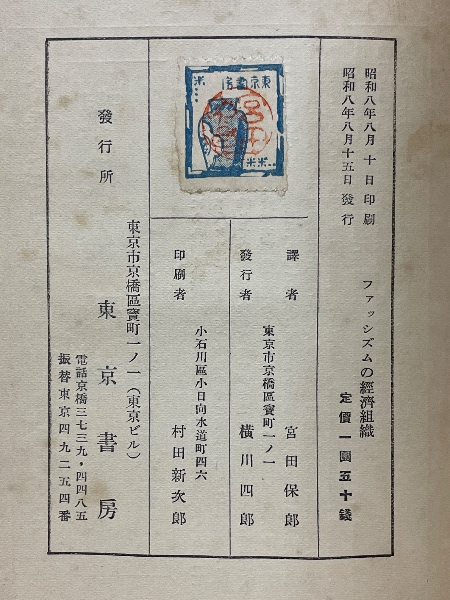 昭和八年八月十日印刷
昭和八年八月十五日發行
ファッシズムの經濟組織
定價一圓五十錢
東京書房
譯者 宮田保郎
東京市京橋區寳町一ノ一
發行者 横川四郎
小石川區小日向水道町四六
印刷者 村田新次郎
東京市京橋區寳町一ノ一(東京ビル)
發行所 東京書房
電話京橋三七三九・四四八五
振替東京四九二五四番